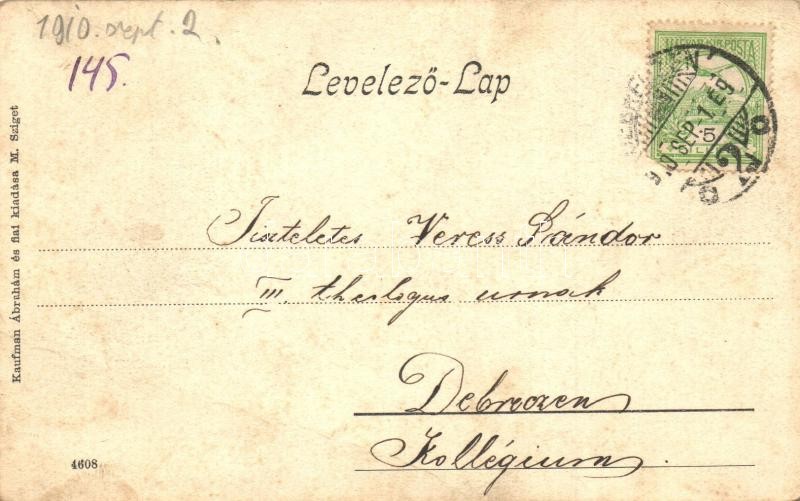 1910. szept. 2.
145.
Levelező-Lap
MAGYAR KIR. POSTA
5
Tiszteletes Veress Sándor
III. theologus urnak
Debreczen
Kollégium.
Kaufman Ábrahám és fiai kiadása M. Sziget
4608